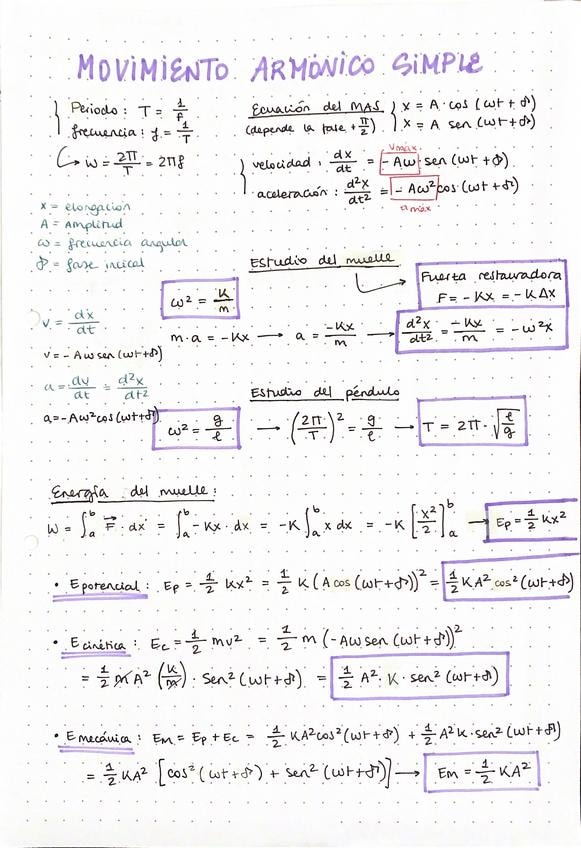 MOVIMIENTO ARMÓNICO SIMPLE
Periodo: T = 1/f
frecuencia: f = 1/T
ω = 2π/T = 2πf
Ecuación del MAS
(depende la fase + π/2)
x = A · cos (ωt + φ)
x = A sen (ωt + φ)
Vmáx
velocidad: dx/dt = -Aω sen (ωt + φ)
aceleración: d²x/dt² = -Aω² cos (ωt + φ)
a máx
x = elongación
A = Amplitud
ω = frecuencia angular
φ = fase inicial
v = dx/dt
v = -Aω sen (ωt + φ)
a = dv/dt = d²x/dt²
a = -Aω² cos (ωt + φ)
Estudio del muelle
Fuerza restauradora
F = -Kx = -K Δx
ω² = K/m
m·a = -Kx → a = -Kx/m → d²x/dt² = -Kx/m = -ω²x
Estudio del péndulo
ω² = g/l → (2π/T)² = g/l → T = 2π · √(l/g)
Energía del muelle:
W = ∫ₐᵇ F⃗ · dx = ∫ₐᵇ -Kx · dx = -K ∫ₐᵇ x dx = -K [x²/2]ₐᵇ → Ep = 1/2 Kx²
• E potencial: Ep = 1/2 Kx² = 1/2 K (A cos (ωt + φ))² = 1/2 KA² cos² (ωt + φ)
• E cinética: Ec = 1/2 mv² = 1/2 m (-Aω sen (ωt + φ))²
= 1/2 m A² (K/m) · sen² (ωt + φ) = 1/2 A² · K · sen² (ωt + φ)
• E mecánica: Em = Ep + Ec = 1/2 KA² cos² (ωt + φ) + 1/2 A² K · sen² (ωt + φ)
= 1/2 KA² [cos² (ωt + φ) + sen² (ωt + φ)] → Em = 1/2 KA²